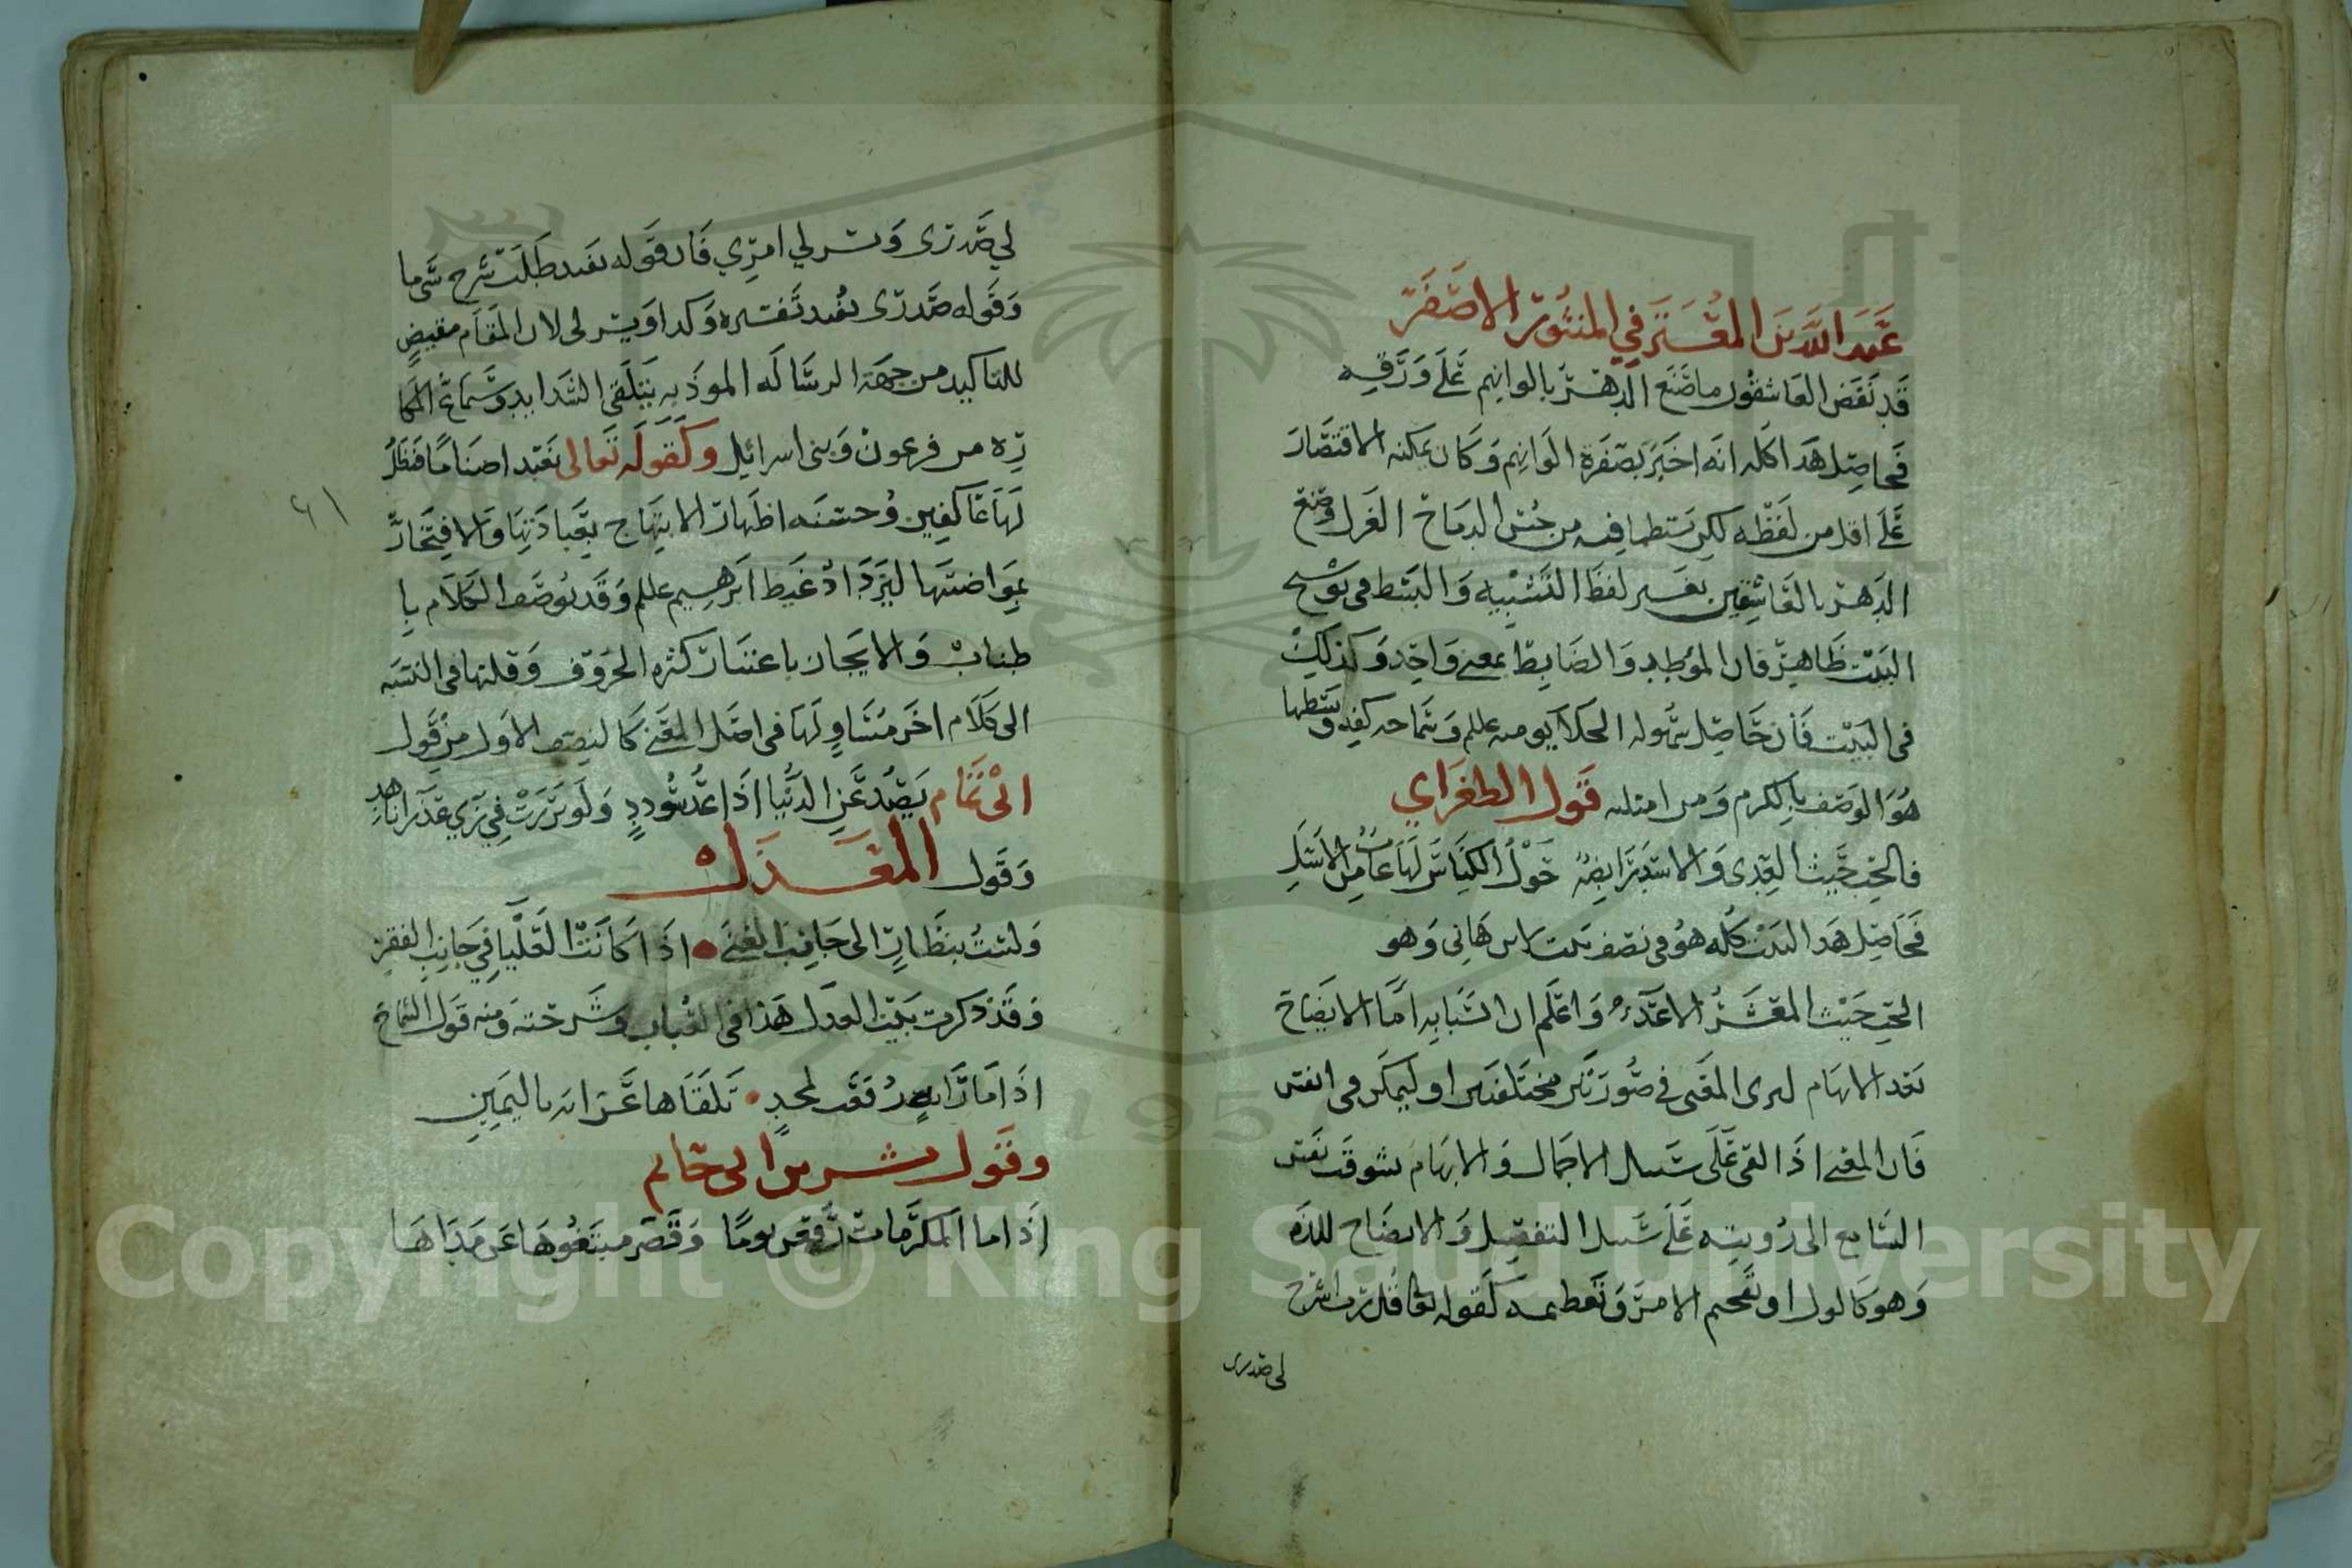 عبد الله بن المعتز في المنثور الاصفر
قد نفض العاشقون ما صنع الدهر بالوانهم على ورقه
فحاصل هذا كله انه اخبر بصفرة الوانهم وكان يمكنه الاقتصار
على اقل من لفظه لكن بسطها فيه من حسن ادماج الغزل وصنع
الدهر بالعاشقين بغير لفظ التشبيه والبسط في توشيح
البيت ظاهر فان الموطد والضابط بمعنى واحد وكذلك
في البيت فان حاصل شموله يومه عللم وسماحه كفه وبسطها
هو الوصف بالكرم ومن امثلته قول الطغراي
فالحب حيث العدى والاسد رابضة حول الكناس لها غاب من الاسل
فحاصل هذا البيت كله هو في نصف بيت لابن هاني وهو
الحب حيث المعشر الاعداء واعلم ان الشبايه اما الايضاح
بعد الابهام ليرى المعنى في صورتين مختلفتين او ليمكن في النفس
فان المعنى اذا القى على سبيل الاجمال والابهام تشوقت نفس
السامع الى رويته على سبيل التفصيل والايضاح للذه
وهو كالول او تفخيم الامر وتعظيمه كقوله تعا قل رب اشرح
لي صدري
لي صدري ويسر لي امري فان قوله يفيد طلب شرح شي ما
وقوله صدري يفيد تفسيره وكذا ويسر لي لان المقام مقيض
للتاكيد من جهة الرسالة الموذيه بتلقي الشدايد وسماع المكا
ره من فرعون وبني اسرائيل وكقوله تعالى نعبد اصناما فنظل
لها عاكفين وحسنه اظهار الابتهاج بعبادتها والافتخار
بمواضبتها ليزداد غيظ ابرهيم عللم وقد يوصف الكلام با
طناب والايجاز باعتبار كثره الحروف وقلتها في النسبه
الى كلام اخر مساو لها في اصل المعنى كالنصف الاول من قول
ابي تمام يصد عن الدنيا اذا عن سودد ولو برزت في زي عذرا ناهد
وقول المعذل
ولست بنظار الى جانب الغنى اذا كانت العليا في جانب الفقر
وقد ذكرت بيت العدل هذا في الباب وشرحته ومنه قول الشماخ
اذا ما راية رفعت لمجد تلقاها عرابه باليمين
وقول بشر بن ابي حازم
اذا ما المكرمات رفعن يوما وقصر مبتغوها عن مداها
٦١
Copyright © King Saud University
1957